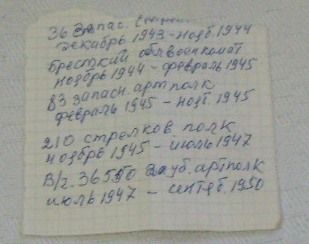 36 запас.
декабрь 1943 - нояб. 1944
Брестский облвоенкомат
ноябрь 1944 - февраль 1945
83 запасн. артполк
февраль 1945 - нояб. 1945
210 стрелков. полк
ноябрь 1945 - июль 1947
В/г. 36550 артполк
июль 1947 - сентяб. 1950